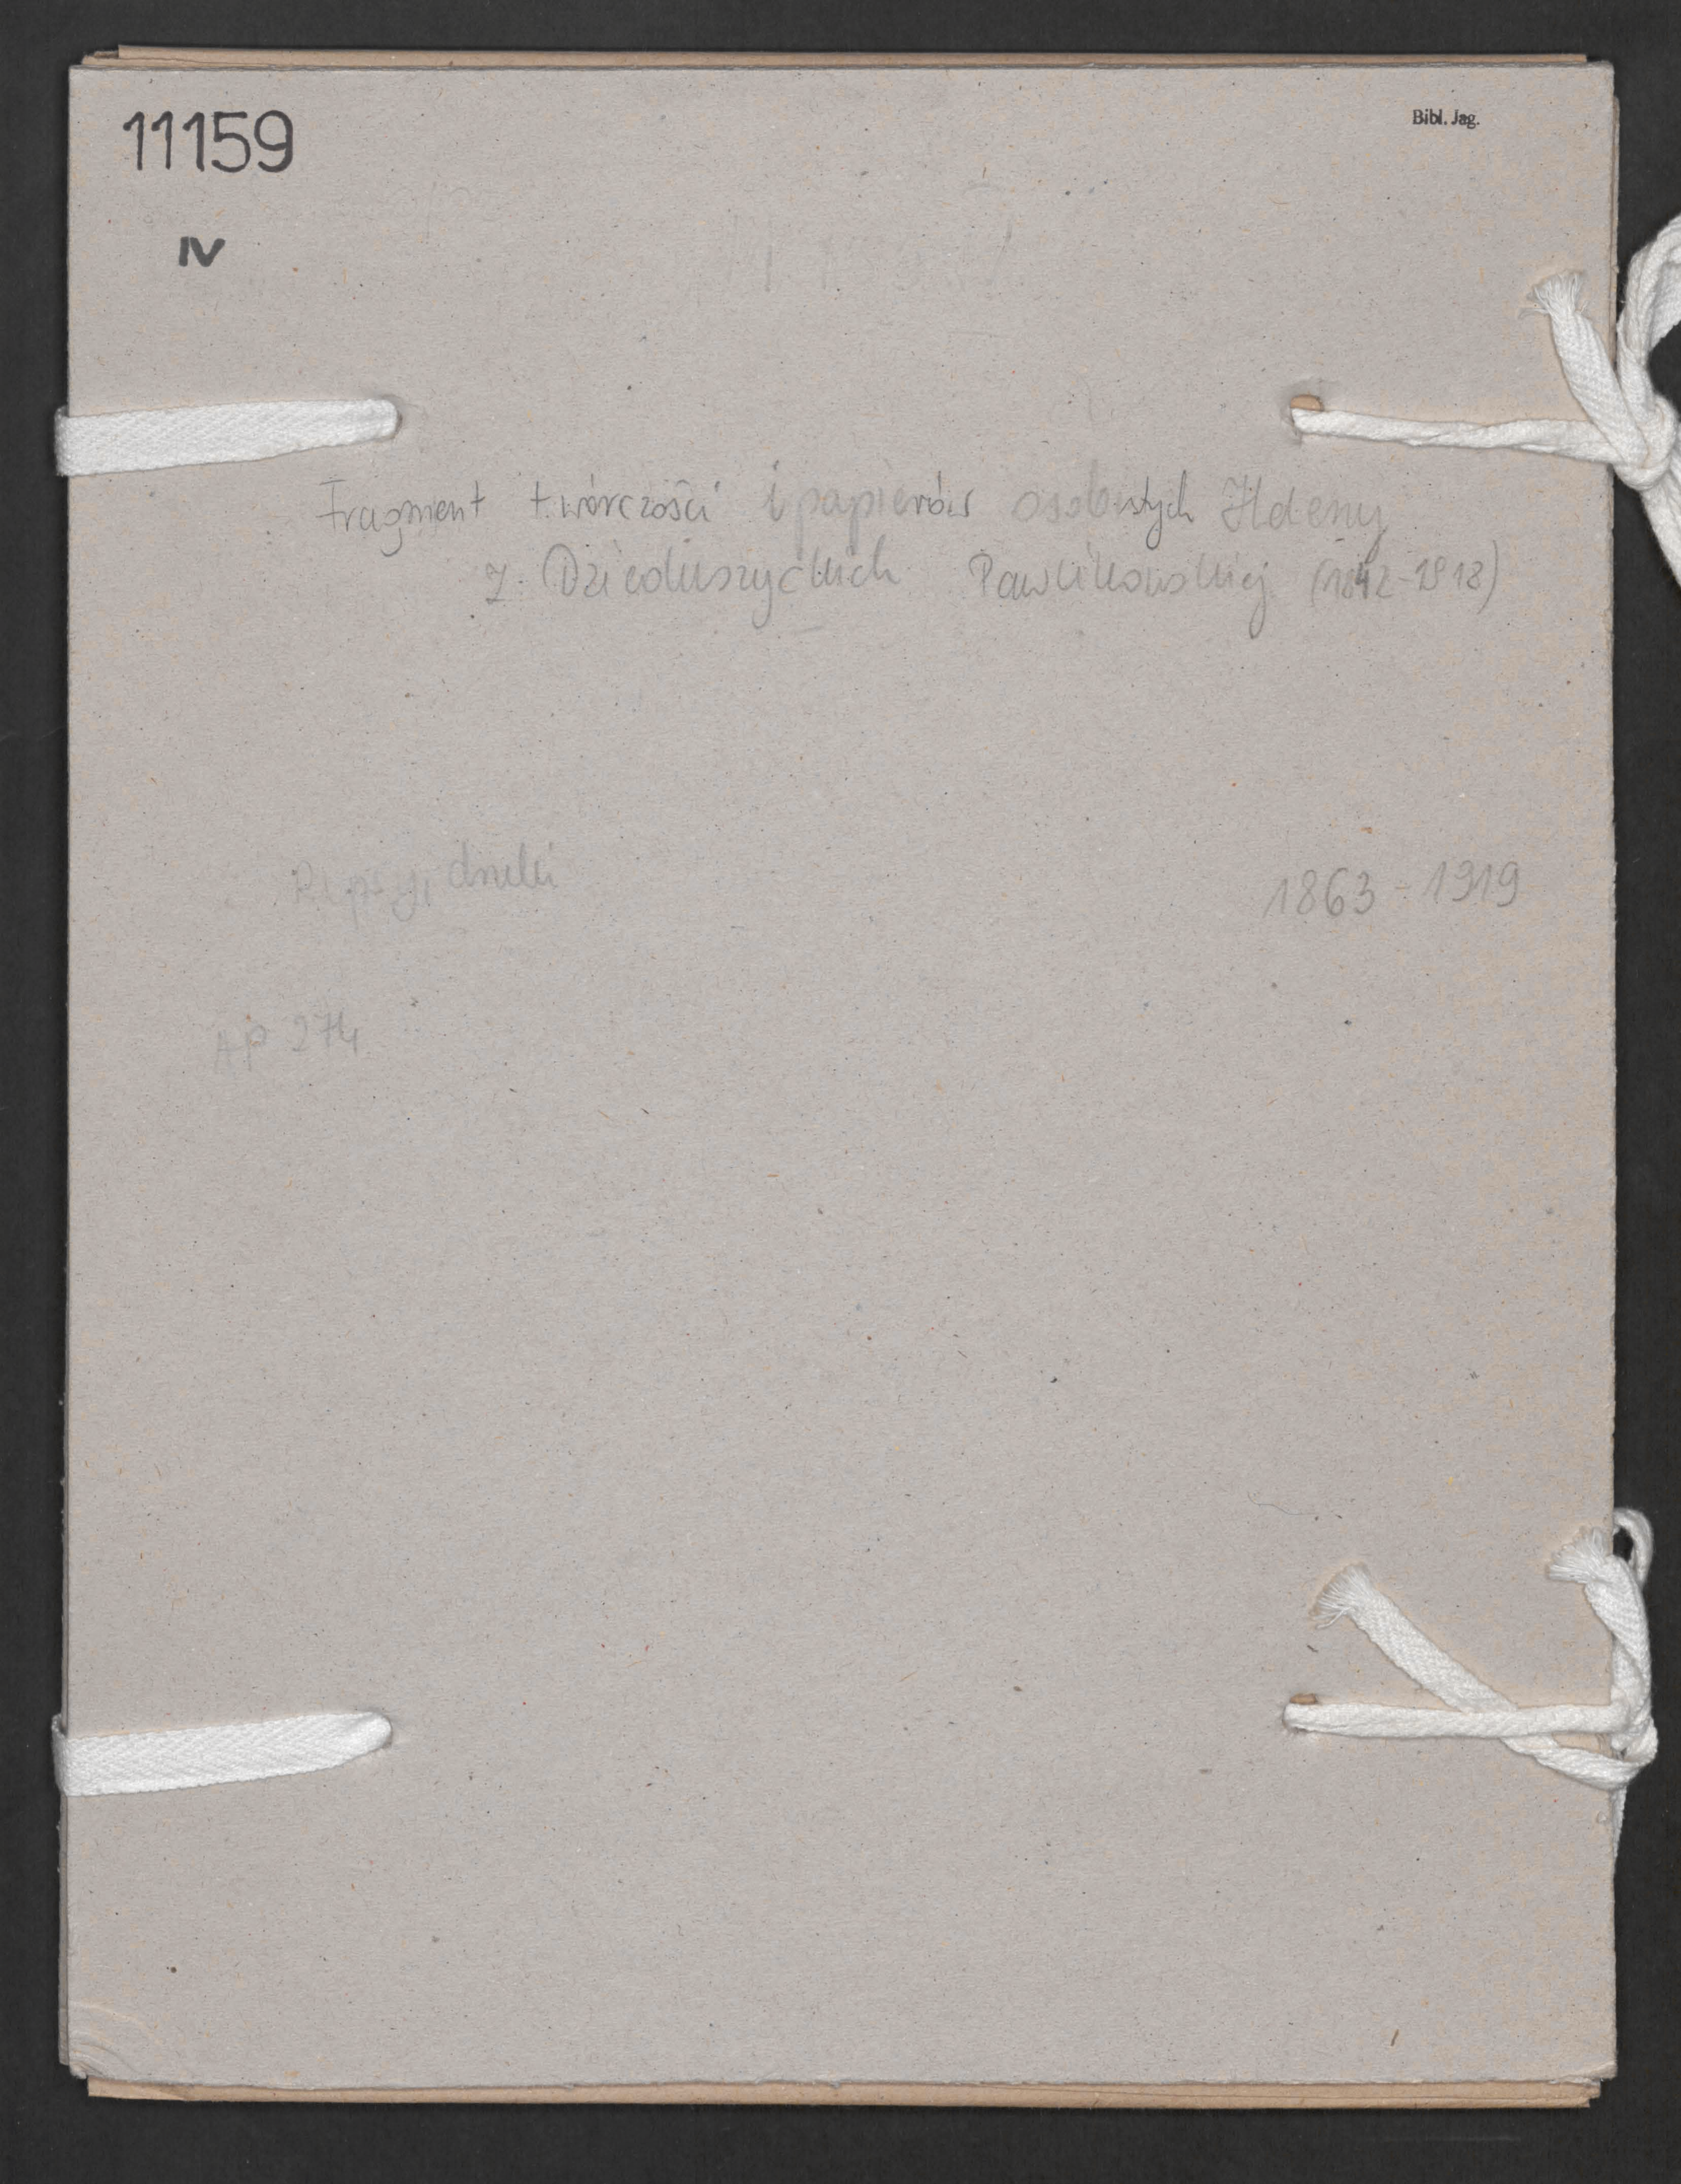 11159
Bibl. Jag.
IV
Fragment twórczości i papierów osobistych Heleny
z Dzieduszyckich Pawlikowskiej (1842-1918)
druki
1863-1919
AP 274